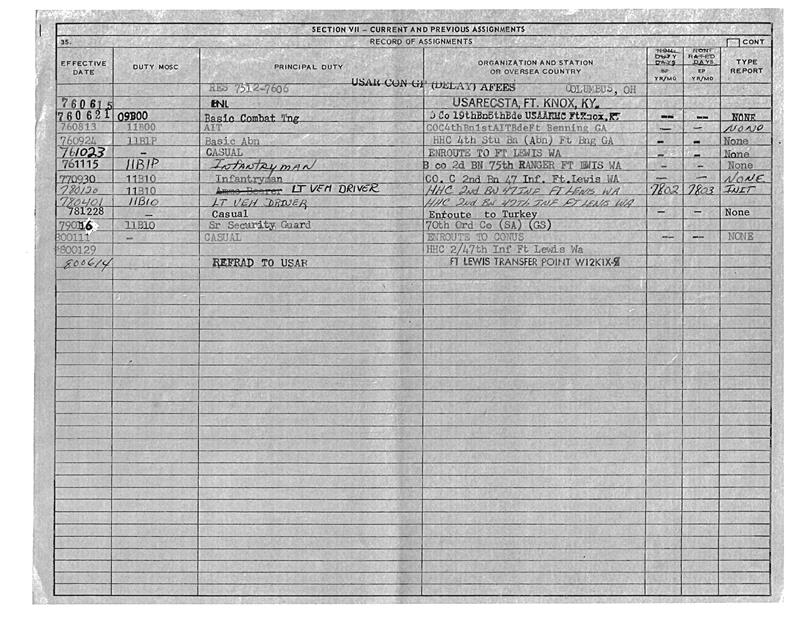 SECTION VII – CURRENT AND PREVIOUS ASSIGNMENTS
35. RECORD OF ASSIGNMENTS CONT
EFFECTIVE DATE DUTY MOSC PRINCIPAL DUTY ORGANIZATION AND STATION OR OVERSEA COUNTRY NON DUTY DAYS EP YR/MO NON RATED DAYS EP YR/MO TYPE REPORT
RES 7512-7606 USAR CON GP (DELAY) AFEES COLUMBUS, OH
760615 ENL USARECSTA, FT. KNOX, KY.
760621 09B00 Basic Combat Tng Co 19thBn5thBde Knox, -- -- NONE
760813 11B00 AIT COC4thBn1stAITBdeFt Benning GA — — NONO
760924 11B1P Basic Abn HHC 4th Stu Bn (Abn) Ft Bng GA - - None
761023 - CASUAL ENROUTE TO FT LEWIS WA - - None
761115 11B1P INFANTRYMAN B co 2d BN 75th RANGER FT EWIS WA - - None
770930 11B10 Infantryman CO. C 2nd Bn 47 Inf. Ft.Lewis WA — — NONE
780120 11B10 Ammo Bearer LT VEH DRIVER HHC 2nd BN 47 INF FT LEWIS WA 7802 7803 INIT
780401 11B10 LT VEH DRIVER HHC 2nd BN 47th INF FT LEWIS WA
781228 — Casual Enroute to Turkey - - None
790116 11B10 Sr Security Guard 70th Ord Co (SA) (GS)
800111 - CASUAL ENROUTE TO CONUS -- -- NONE
800129 HHC 2/47th Inf Ft Lewis Wa
800614 REFRAD TO USAR FT LEWIS TRANSFER POINT